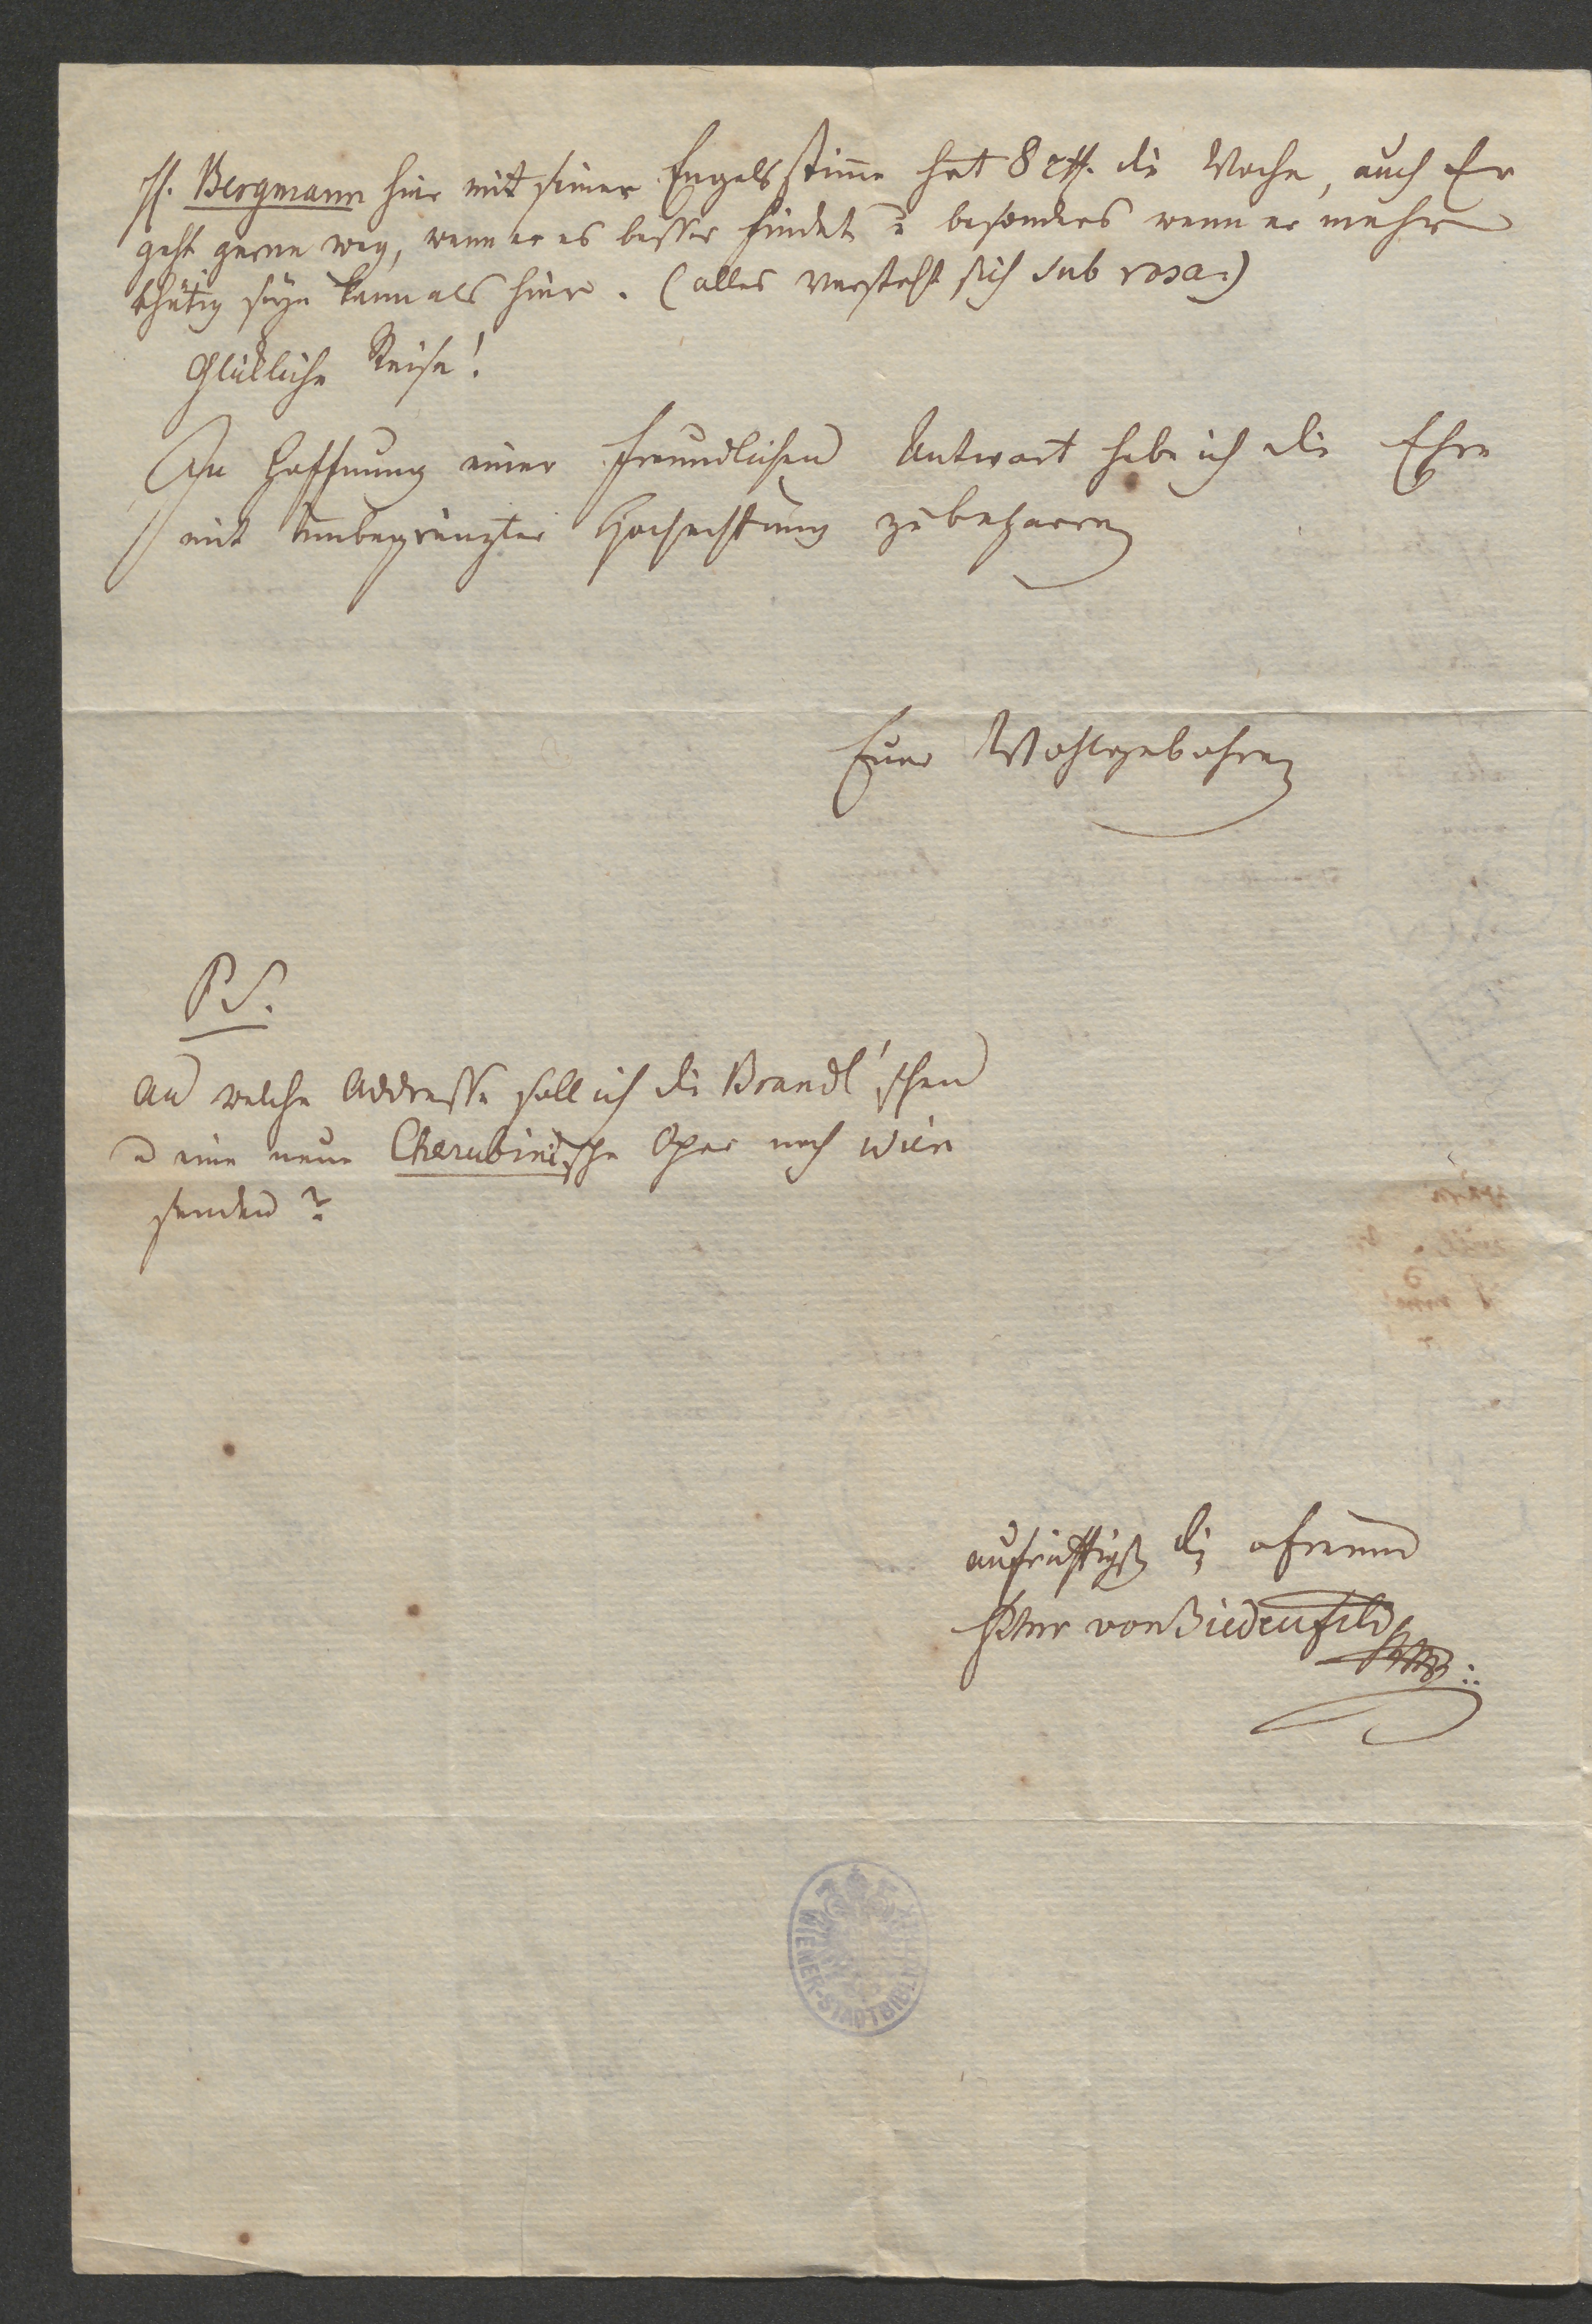 H. Bergmann hier mit seiner Engelsstim̄e hat 8 rth. die Woche, auch Er
geht gerne weg, wenn er es besser findet u besonders wenn er mehr
thätig seyn kann als hier. (alles versteht sich sub rosa:)
Glükliche Reise!
In Hoffnung einer freundlichen Antwort habe ich die Ehre
mit unbegränzter Hochachtung zu beharren
Euer Wohlgebohren
PS.
An welche Addresse soll ich die Brandl'schen
u eine neue Cherubinische Oper nach Wien
senden?
aufrichtigst
von Biedenfeld
WIENER-STADTBIBLIOTHEK